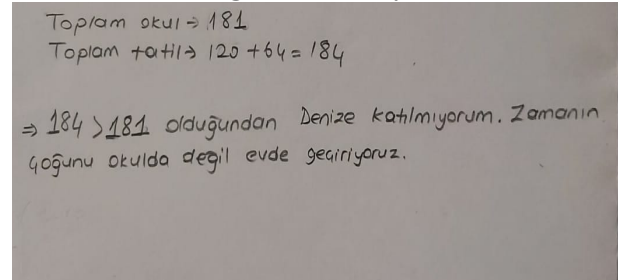 Toplam okul ⇒ 181
Toplam tatil → 120 + 64 = 184
⇒ 184 > 181 olduğundan Denize katılmıyorum. Zamanın
çoğunu okulda değil evde geçiriyoruz.